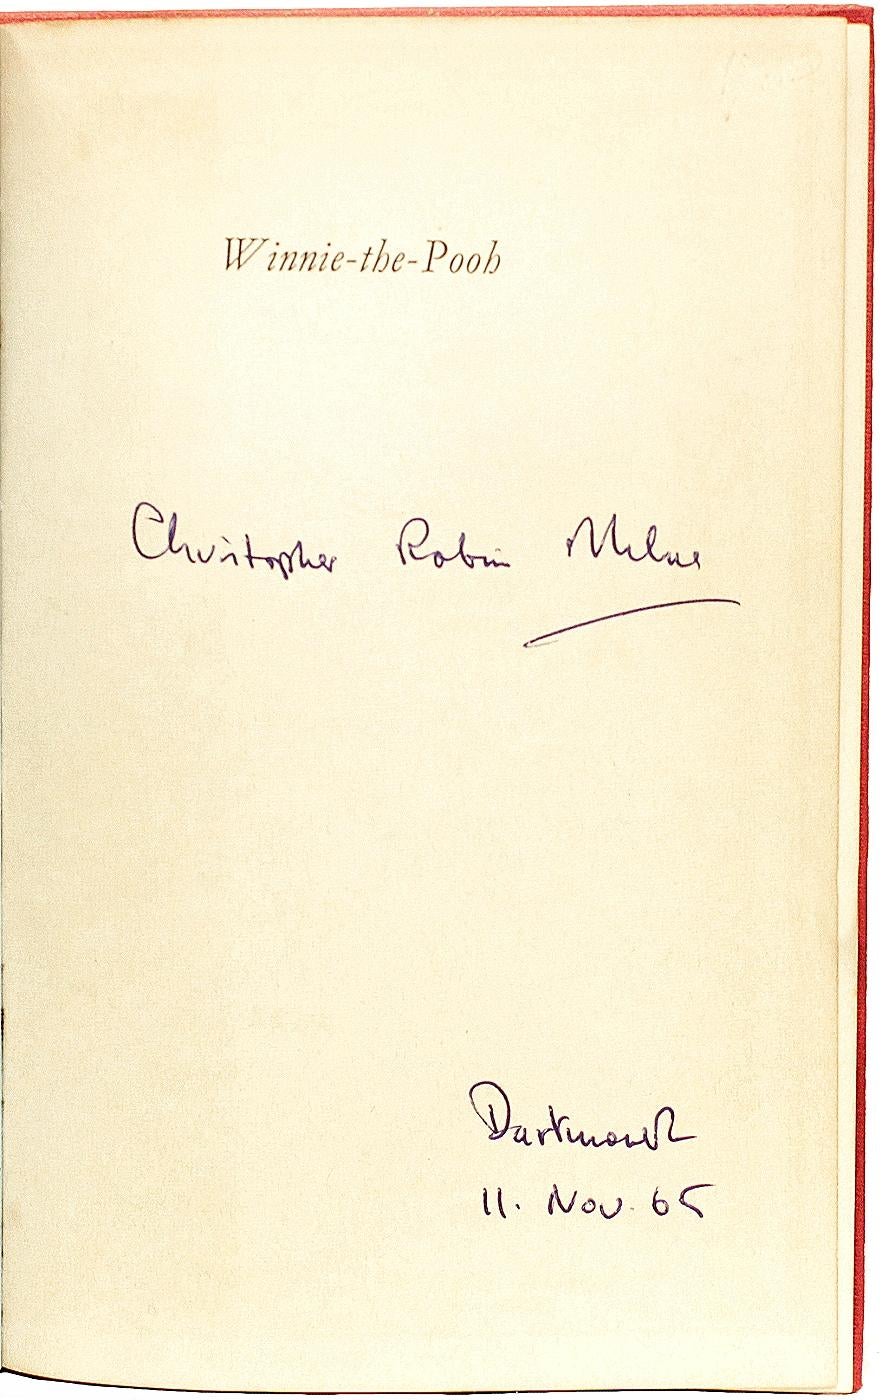 Winnie-the-Pooh
Christopher Robin Milne
Dartmouth
11. Nov. 65